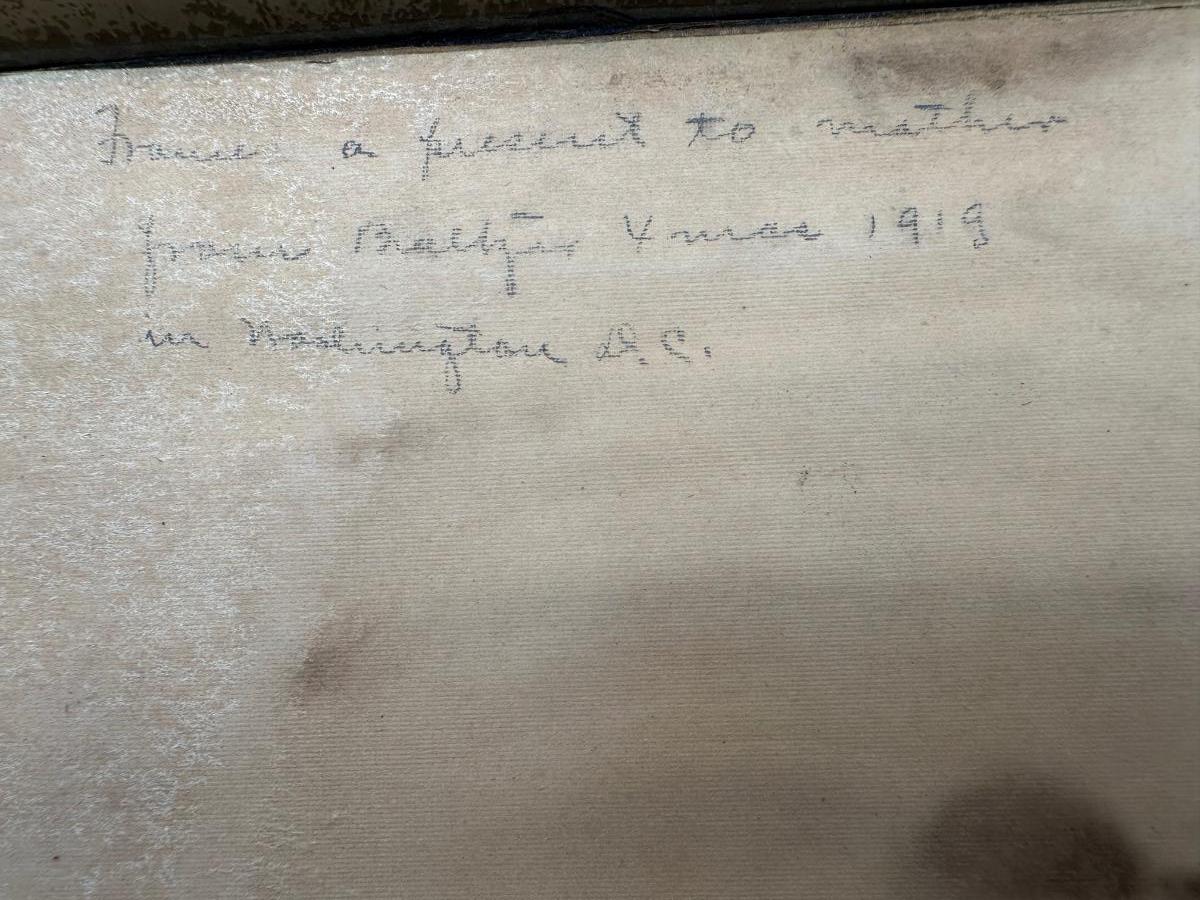 Frame a present to mother
from Xmas 1919
in Washington D.C.